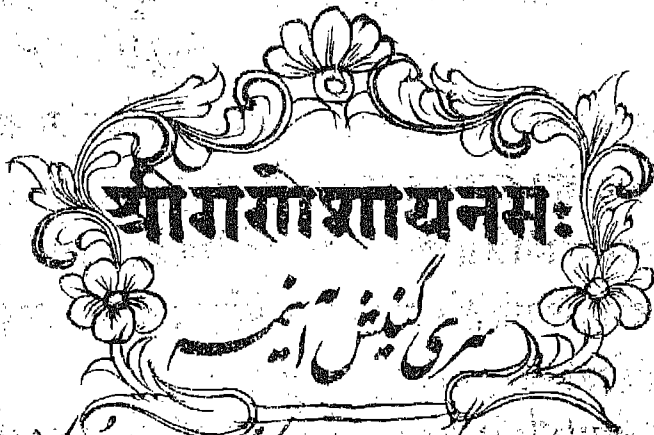 श्रीगणेशायनमः
سری گنیش آینمہ